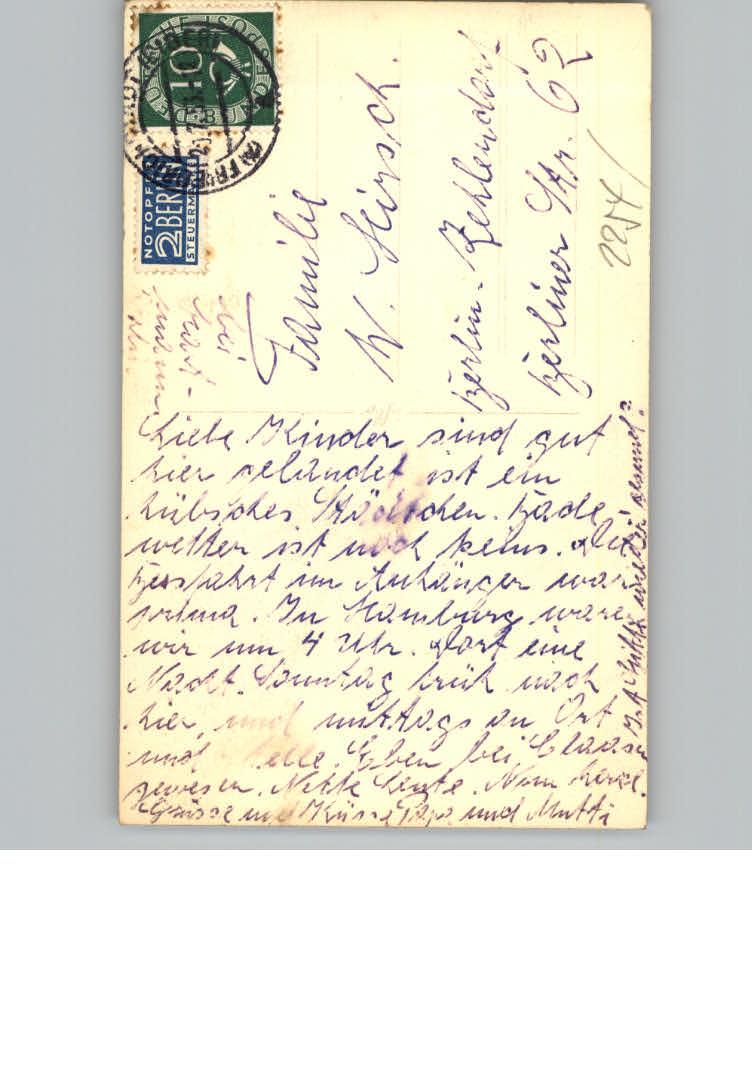 DEUTSCHE BUNDESPOST
10
NOTOPFER
2 BERLIN
STEUERMARKE
Familie
W. Hirsch.
Berlin-Zehlendorf
Berliner Str. 62
2254/
bei
Liebe Kinder sind gut
hier gelandet ist ein
hübsches Städtchen. Bade-
wetter ist noch keins. Die
fahrt im Anhänger war
prima. In Hamburg waren
wir um 4 Uhr. Dort eine
Nacht. Sonntag früh nach
hier, und mittags an Ort
und Stelle. Eben bei Claasen
gewesen. Nette Leute. Nun
Grüsse und Küsse Papa und Mutti
Ist wieder gesund?